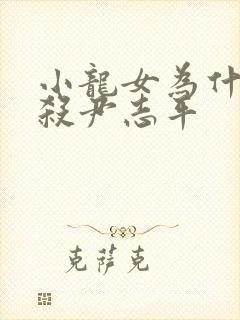 小龍女為什
殺尹志平
克薩克